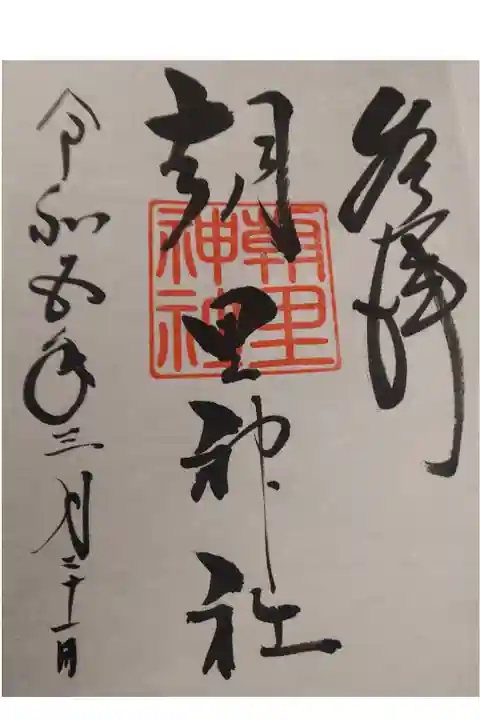 参拝
朝里神社
令和五年三月二十一日
朝里
神社